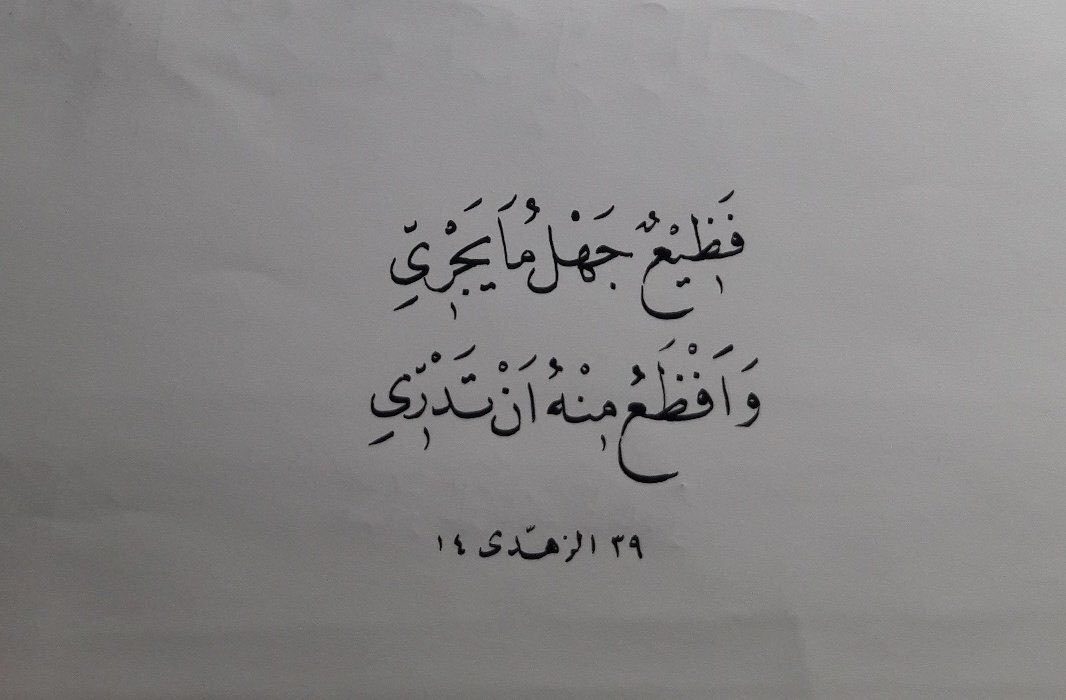 فَظِيْعٌ جَهْلُ مَا يَجْرِيّ
وَاَفْظَعُ مِنْهُ اَنْ تَدْرِّي
٣٩ الزهدّى ١٤